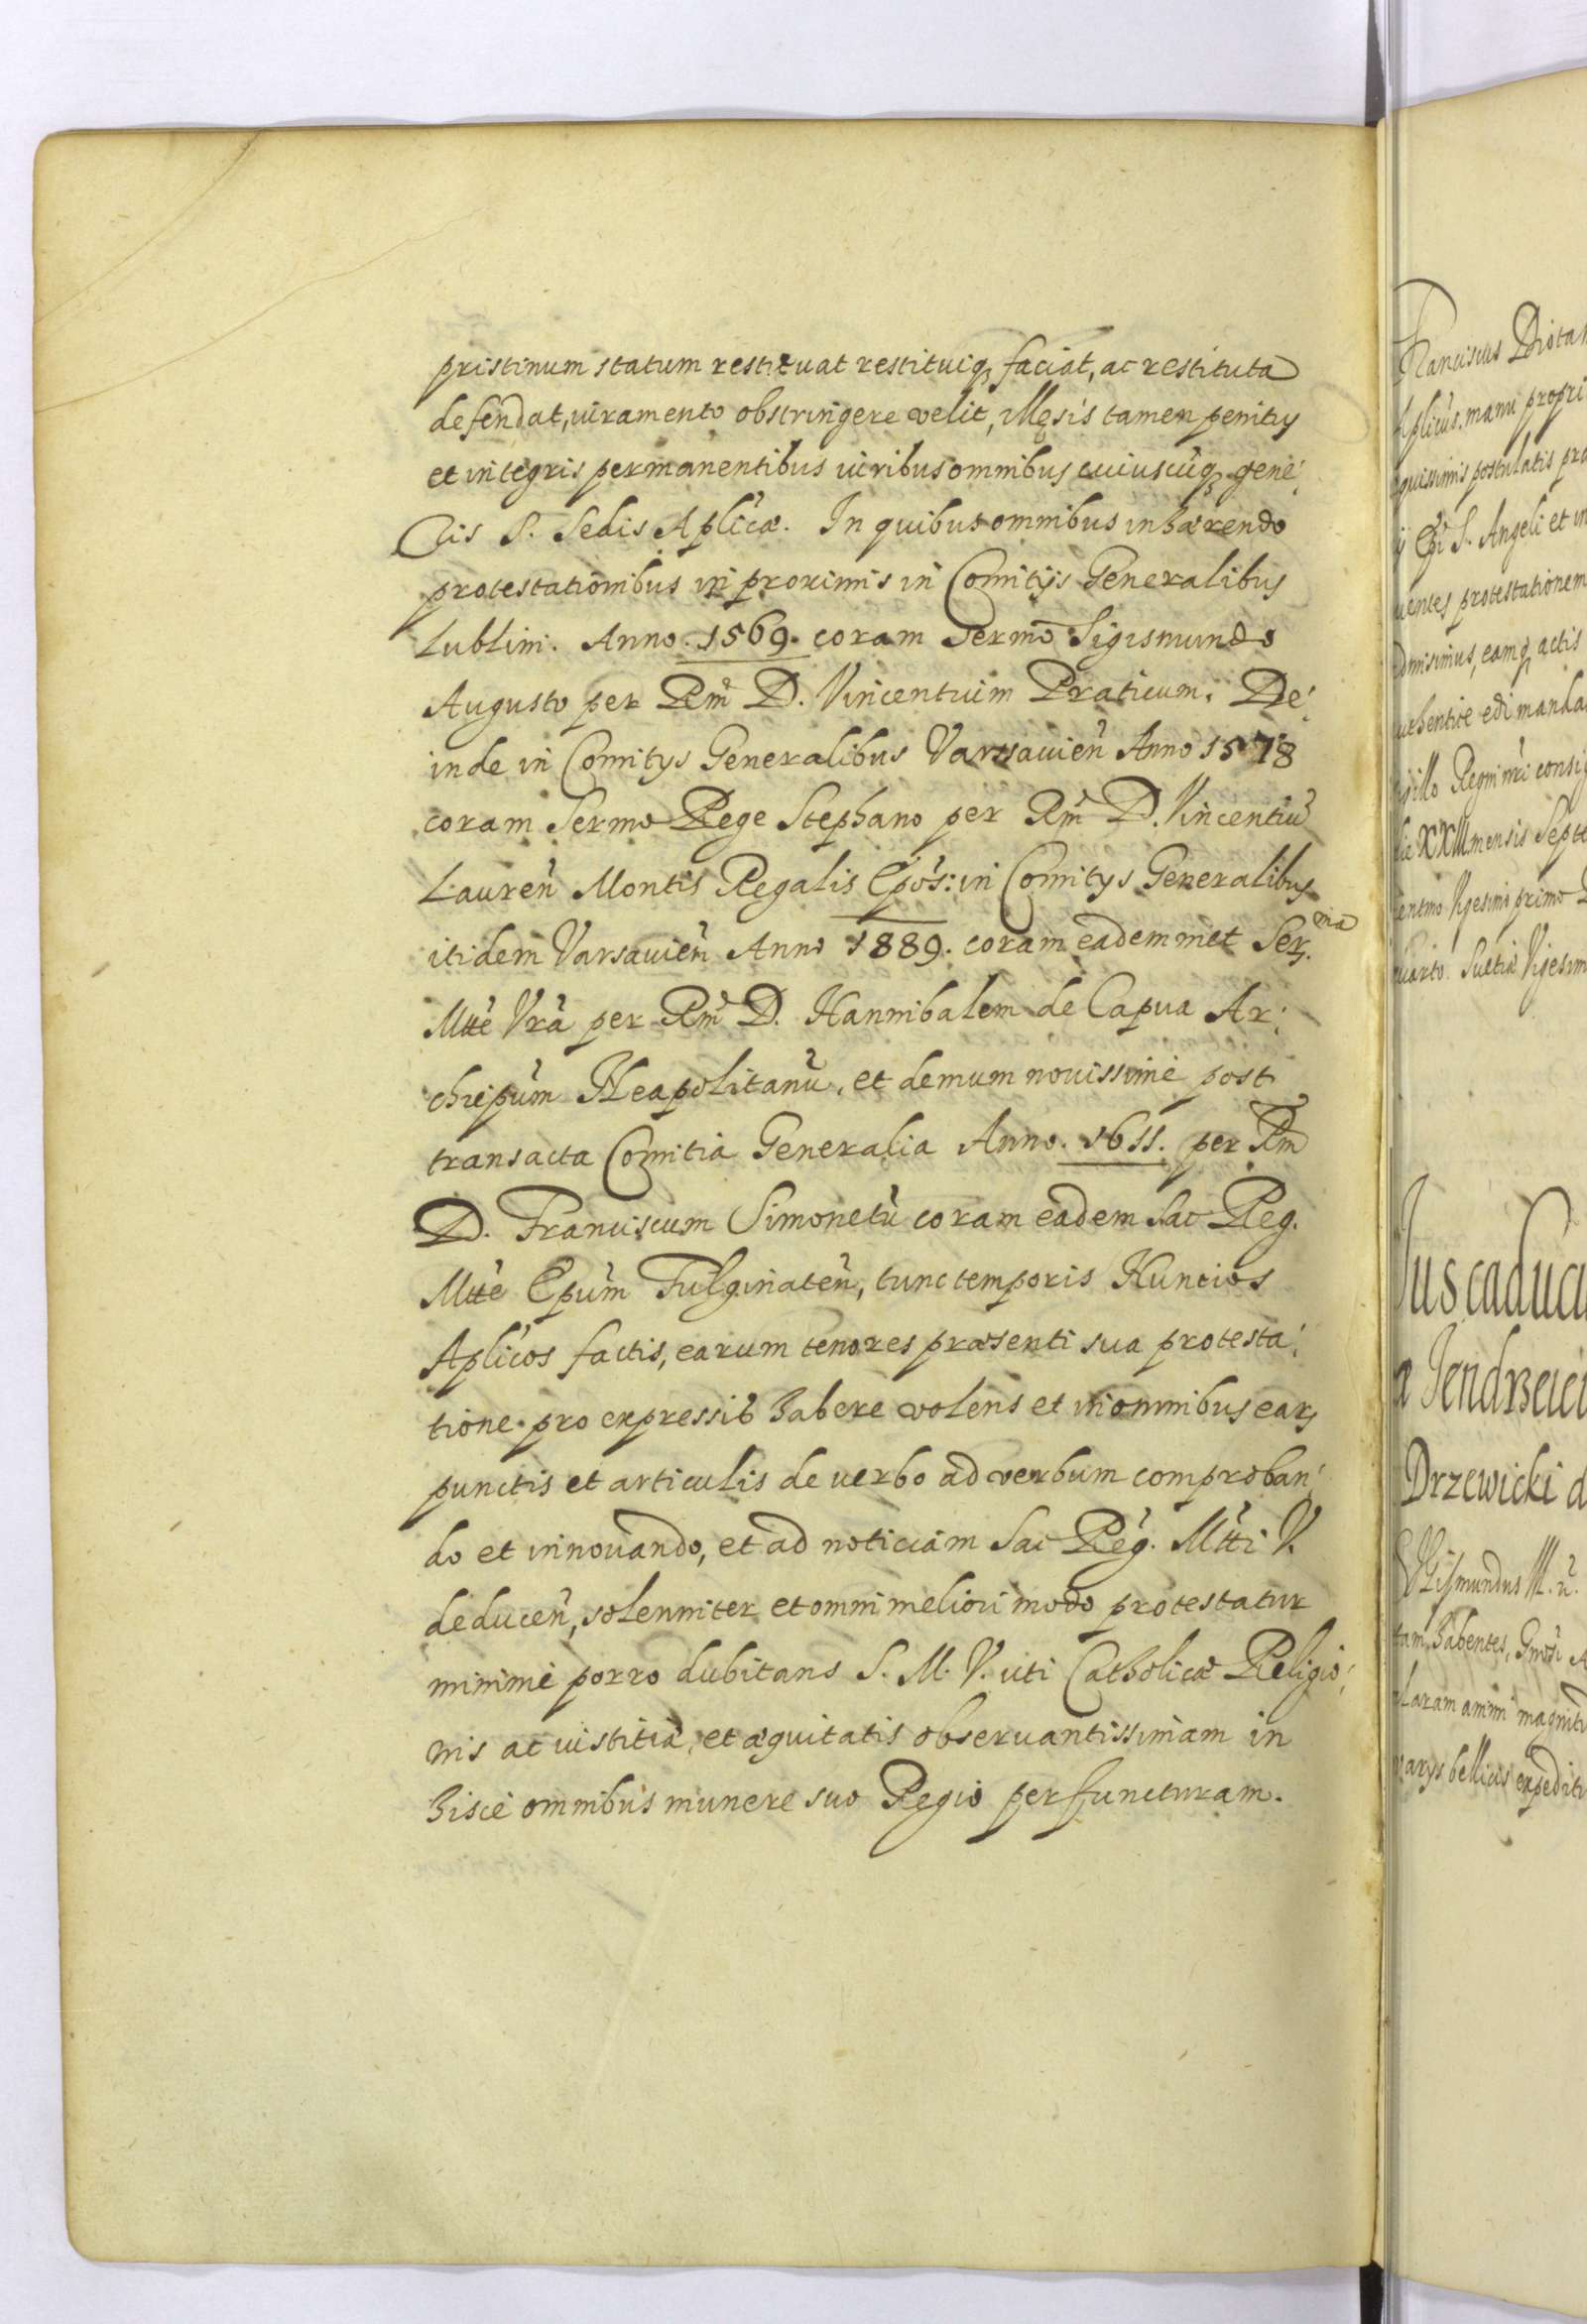 pristinum statum restituat restituiq; faciat, ac restituta
defendat, iuramento obstringere velit, illęsis tamen penitus
et integris permanentibus iuribus omnibus cuiuscuq; gene
ris S. Sedis Aplicæ. In quibus omnibus inhærendo
protestationibus in proximis in Comitijs Generalibus
Lublini. Anno. 1569. coram Sermo Sigismundo
Augusto per Rm D. Vincentium Praticum. De
inde in Comitys Generalibus Varssauien Anno 1578
coram Sermo Rege Stephano per Rm D. Vincentiu
Lauren Montis Regalis Epos: in Comitys Generalibus
itidem Varsauien Anno 1889. coram eademmet Ser. ma
Mtte Vra per Rm D. Hannibalem de Capua Ar
chiepum Neapolitanu, et demum nouissime post
transacta Comitia Generalia Anno. 1611. per Rm
D. Franciscum Simonetu coram eadem Sac Reg.
Mtte Epum Fulginaten, tunc temporis Nuncios
Aplicos factis, earum tenores præsenti sua protesta
tione pro expressis habere volens et in omnibus ear;
punctis et articulis de uerbo ad verbum comproban
do et innouando, et ad noticiam Sac Reg. Mtti V.
deducen, solenniter et omni meliori modo protestatur
minime porro dubitans S. M. V. uti Catholicæ Religio
nis ac iustitiæ, et æquitatis obseruantissimam in
hisce omnibus munere suo Regio perfuncturam.
Franciscus Diotal
Aplicus. manu propri
æquissimis postulatis pra
Epi S. Angeli et in
uentes protestationem
dmisimus, eamq; actis
uthentice edi manda
igillo Regni nri consig
die XXIII mensis Septe
entmo Vigesimo primo
quarto. Suetiæ Vigesim
Ius caduci
a Jendrzeici
Drzewicki d
Sigismundus III. n.
tam habentes, Gnosi A
claram animi magnitu
varys bellicis expediti